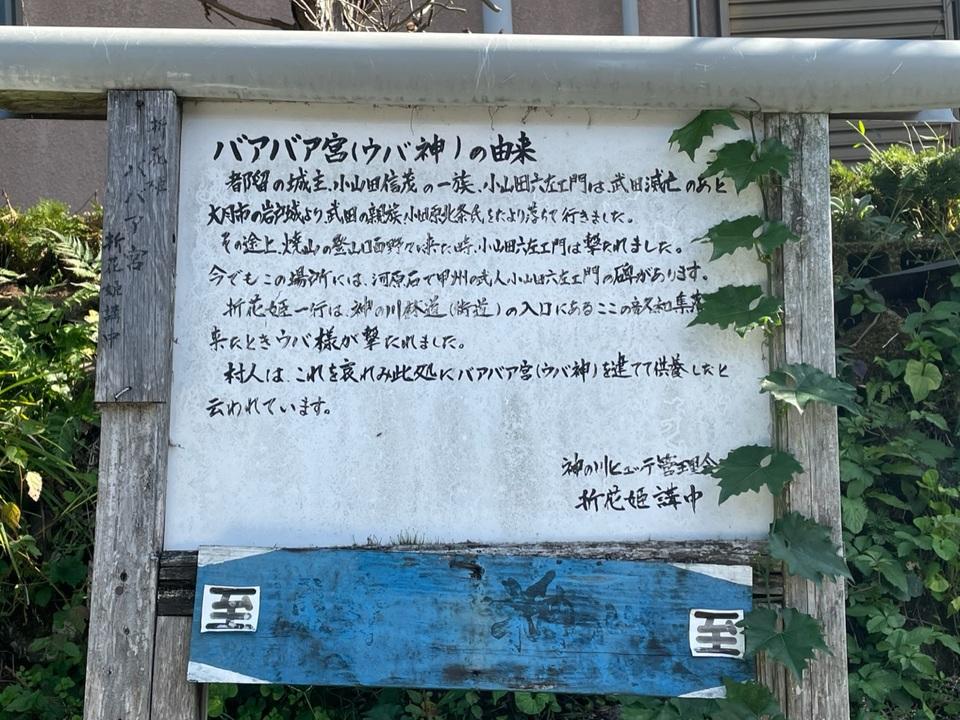 バアバア宮(ウバ神)の由来
都留の城主、小山田信茂の一族、小山田六左エ門は、武田滅亡のあと
大月市の岩戸城より武田の親族、小田原北条氏をたより落ちて行きました。
その途上、焼山の登山口西野々に来た時、小山田六左エ門は撃たれました。
今でもこの場所には、河原石で甲州の武人小山田六左エ門の碑があります。
折花姫一行は、神の川林道(街道)の入口にあるここの音久和集落
来たときウバ様が撃たれました。
村人は、これを哀れみ此処にバアバア宮(ウバ神)を建てて供養したと
云われています。
神の川ヒュッテ管理
折花姫講中
折花姫
バアバア宮
折花姫講中
至
至